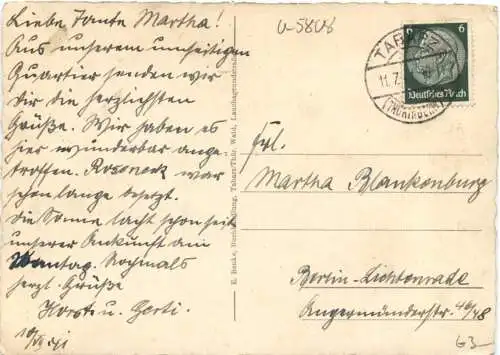 Liebe Tante Martha!
Aus unserem umseitigen
Quartier senden wir
dir die herzlichsten
Grüße. Wir haben es
hier wunderbar ange
troffen. Roseneck war
schon lange besetzt.
Die Sonne lacht schon seit
unserer Ankunft am
Montag. Nochmals
herzl. Grüße
Horst u. Gerti.
U-5808
TABARZ
11.7.
(THÜRINGEN)
6 6
Deutsches Reich
Frl.
Martha Blankenburg
Berlin-Lichtenrade
Angermünderstr. 46/48
63-